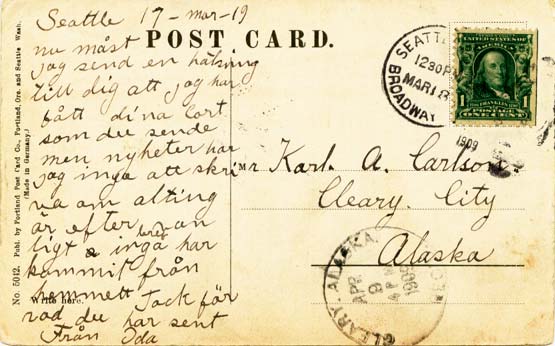 Seattle 17-mar-19
nu måst
POST CARD.
jag send en hälsning
till dig att jag har
fått dina cort
som du sende
men nyheter har
jag inga att skri
va om alting
är efter van
ligt inga brev har
kommit från
hemmett Tack för
vad du har sent
Från Ida
Mr Karl. A. Carlson
Cleary. City
Alaska
SEATTLE
1230 PM
MAR 18
BROADWAY
1909
UNITED STATES OF AMERICA
FRANKLIN
POSTAGE
ONE CENT
1
CLEARY, ALASKA.
APR
9
4 PM
1909
REC'D
No. 5012. Publ. by Portland Post Card Co., Portland, Ore. and Seattle Wash.
(Made in Germany.)
Write here.